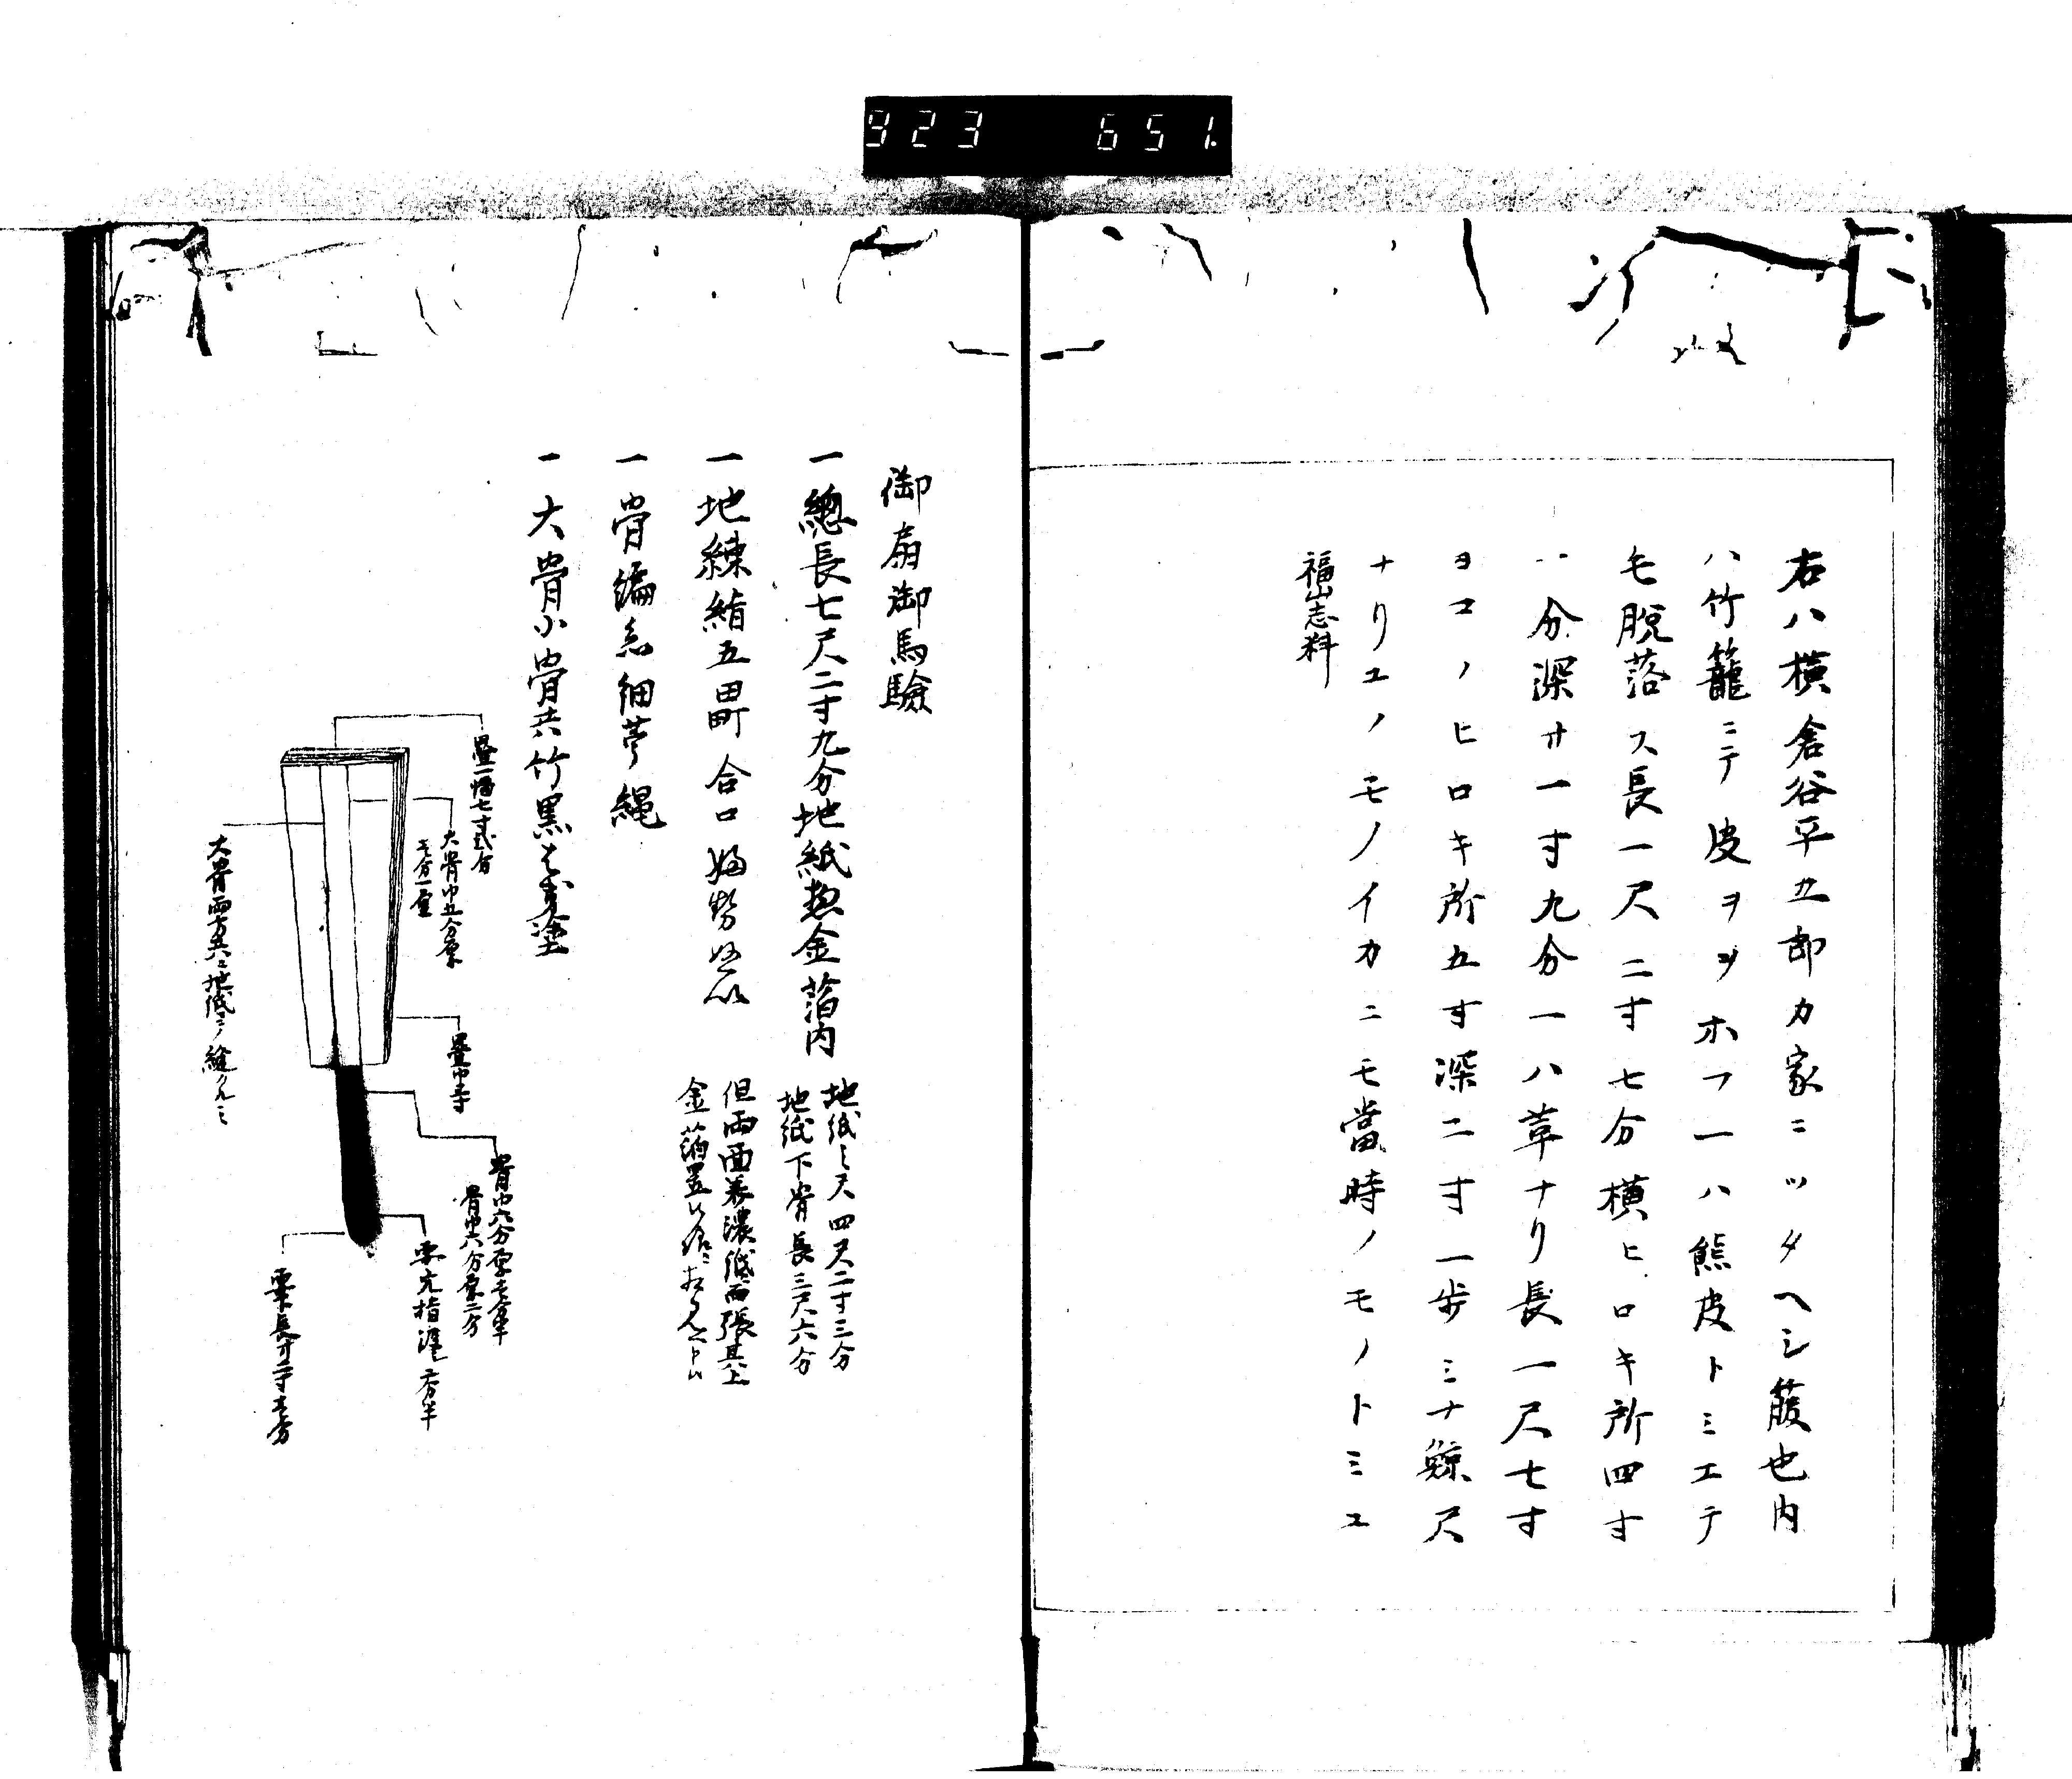 923 651
右ハ横倉谷平五郎カ家ニツタヘシ箙也内
ハ竹籠ニテ皮ヲヲホフ一ハ熊皮トミエテ
毛脱落ス長一尺二寸七分横ヒロキ所四寸
八分深サ一寸九分一ハ草ナリ長一尺七寸
ヨコノヒロキ所五寸深二寸一歩ミナ鯨尺
ナリエノモノイカニモ當時ノモノトミユ
福山志料
御扇御馬驗
一總長七尺二寸九分地紙惣金箔内
地紙之尺四尺二寸三分
地紙下骨長三尺六分
一地練絹五畳合口
但両面美濃紙而張其上
金箔置
一骨編糸細苧縄
一大骨小骨共竹黒塗
畳幅七寸弐分
大骨巾五分厚
畳巾
骨巾六分厚
骨巾六分厚二分
要穴指渡
要長
大骨両方共ニ地紙